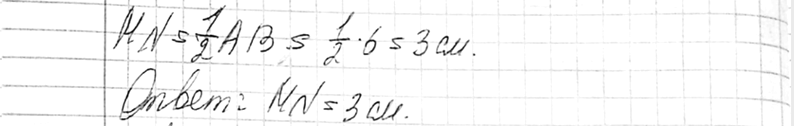 MN = 1/2 AB = 1/2 · 6 = 3 см.
Ответ: MN = 3 см.